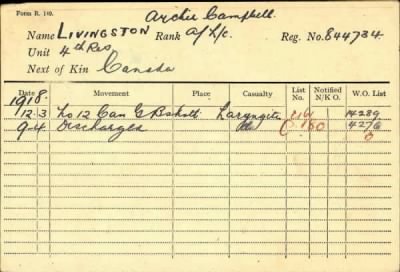 Form R. 140.
Archie Campbell.
Name LIVINGSTON Rank A/L/c. Reg. No. 844734
Unit 4th Res
Next of Kin Canada
Date Movement Place Casualty List No. Notified N/K O. W.O. List
1918.
12.3 No 12 Can G Bshott Laryngitis
9-4 Discharged do C.160 4276